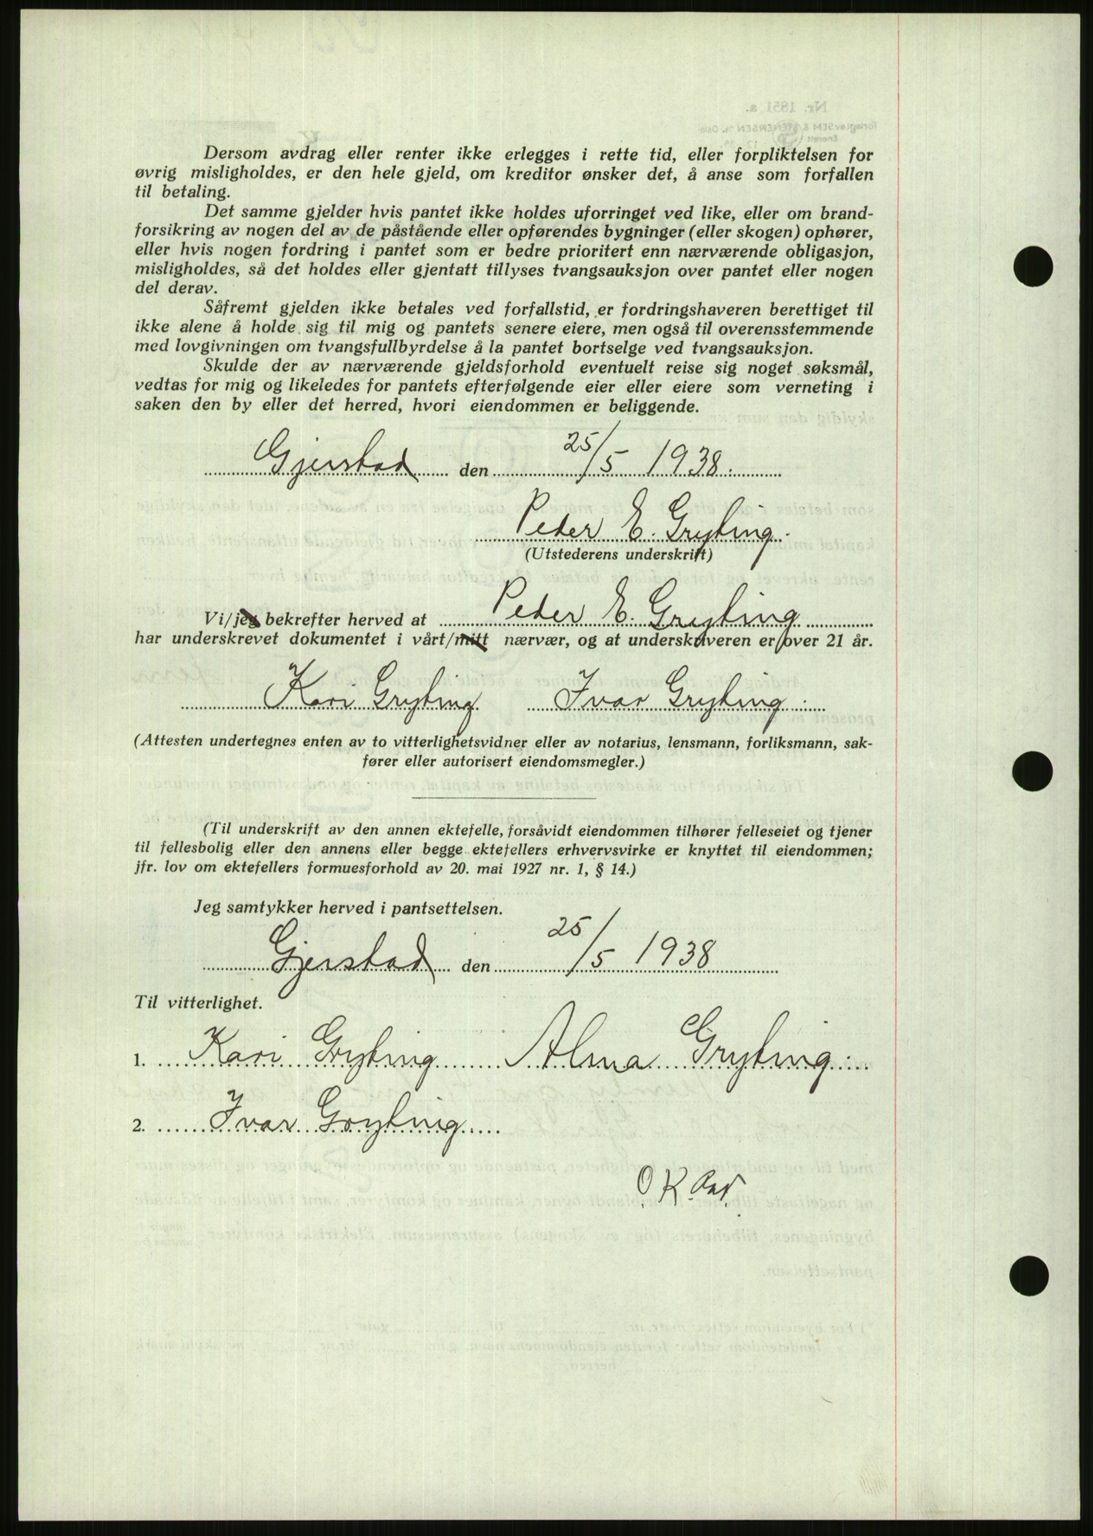 Dersom avdrag eller renter ikke erlegges i rette tid, eller forpliktelsen for
øvrig misligholdes, er den hele gjeld, om kreditor ønsker det, å anse som forfallen
til betaling.
Det samme gjelder hvis pantet ikke holdes uforringet ved like, eller om brand-
forsikring av nogen del av de påstående eller opførendes bygninger (eller skogen) ophører,
eller hvis nogen fordring i pantet som er bedre prioritert enn nærværende obligasjon,
misligholdes, så det holdes eller gjentatt tillyses tvangsauksjon over pantet eller nogen
del derav.
Såfremt gjelden ikke betales ved forfallstid, er fordringshaveren berettiget til
ikke alene å holde sig til mig og pantets senere eiere, men også til overensstemmende
med lovgivningen om tvangsfullbyrdelse å la pantet bortselge ved tvangsauksjon.
Skulde der av nærværende gjeldsforhold eventuelt reise sig noget søksmål,
vedtas for mig og likeledes for pantets efterfølgende eier eller eiere som verneting i
saken den by eller det herred, hvori eiendommen er beliggende.
Gjerstad den 25/5 1938.
Peder E. Gryting.
(Utstederens underskrift)
Vi/jeg bekrefter herved at Peder E. Gryting
har underskrevet dokumentet i vårt/mitt nærvær, og at underskriveren er over 21 år.
Kari Gryting Ivar Gryting.
(Attesten undertegnes enten av to vitterlighetsvidner eller av notarius, lensmann, forliksmann, sak-
fører eller autorisert eiendomsmegler.)
(Til underskrift av den annen ektefelle, forsåvidt eiendommen tilhører felleseiet og tjener
til fellesbolig eller den annens eller begge ektefellers erhvervsvirke er knyttet til eiendommen;
jfr. lov om ektefellers formuesforhold av 20. mai 1927 nr. 1, § 14.)
Jeg samtykker herved i pantsettelsen.
Gjerstad den 25/5 1938
Til vitterlighet.
1. Kari Gryting Alma Gryting.
2. Ivar Gryting
O.K.